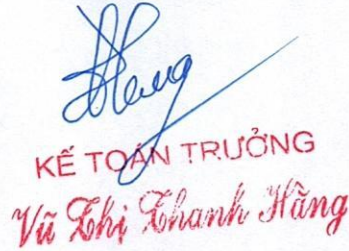 KẾ TOÁN TRƯỞNG
Vũ Thị Thanh Hằng